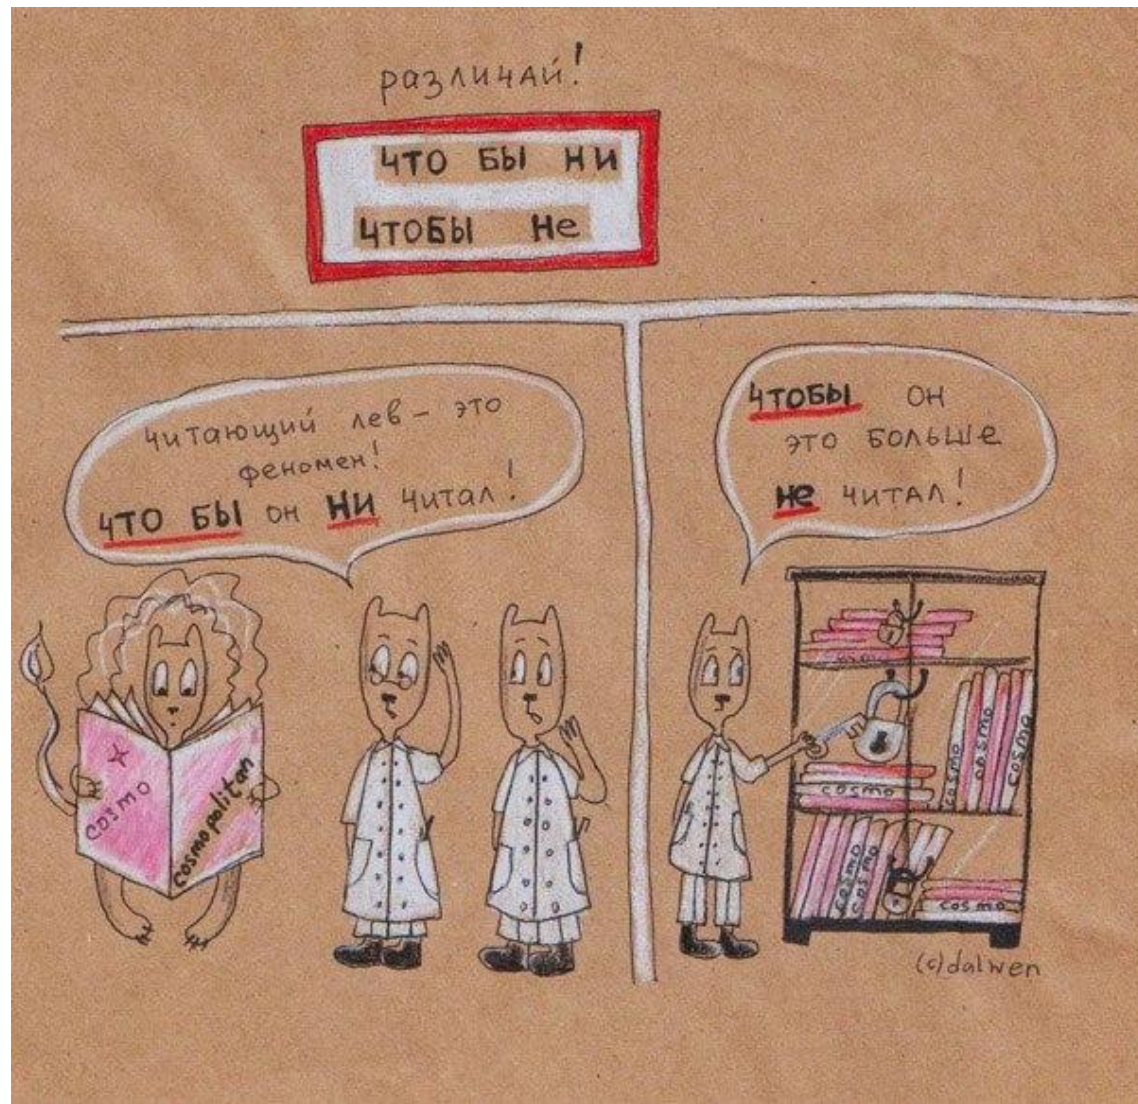 различай!
что бы ни
чтобы не
читающий лев - это
феномен!
что бы он ни читал!
чтобы он
это больше
не читал!
cosmo
cosmopolitan
cosmo
cosmo
cosmo
cosmo
cosmo
cosmo
cosmo
cosmo
(c)dalwen